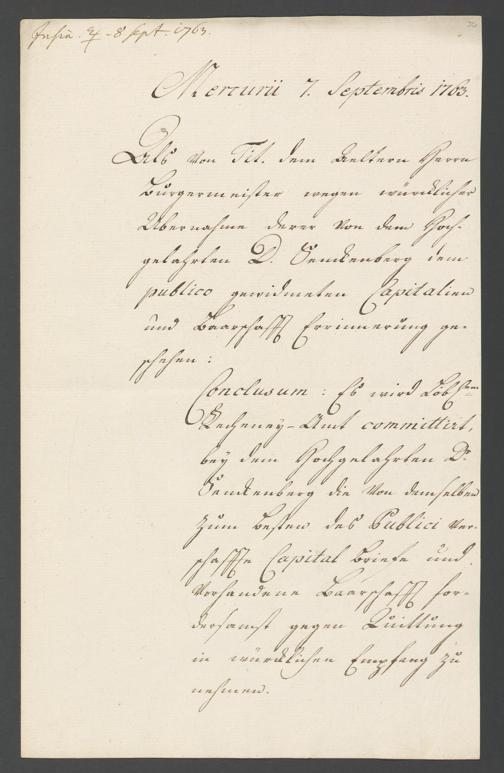 8 Sept. 1763.
Mercurii 7. Septembris 1763.
Als von Tit. dem Aeltern Herrn
Burgermeister wegen würcklicher
Übernahme derer von dem Hoch-
gelahrten D. Senckenberg dem
publico gewidmeten Capitalien
und Baarschafft Errinnerung ge-
schehen:
Conclusum: Es wird Löbl.
Recheney-Amt committirt,
bey dem Hochgelahrten Dr.
Senckenberg die von demselben
zum besten des Publici ver-
schaffte Capital briefe und
vorhandene Baarschafft for-
dersamst gegen Quittung
in würcklichen Empfang zu
nehmen.